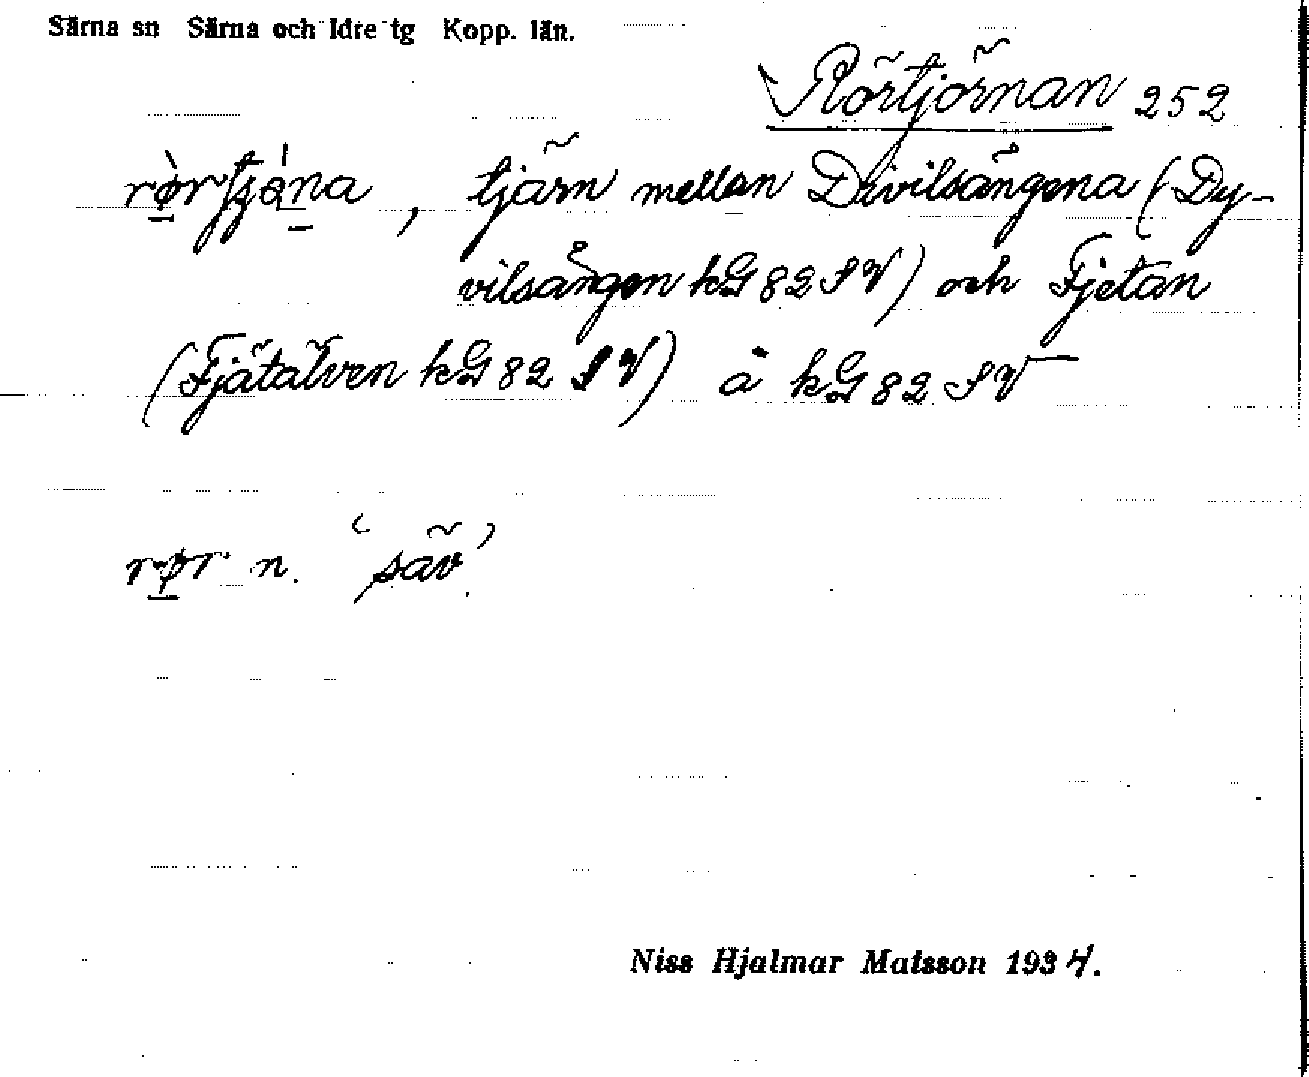 Särna sn Särna och Idre tg Kopp. län.
Rörtjörnan 252
tjärn mellan Divilsängena (Dy-
vilsängen kG 82 SV) och Fjetan
(Fjätälven kG 82 SV) å kG 82 SV
rør n. 'säv'.
Niss Hjalmar Matsson 1934.